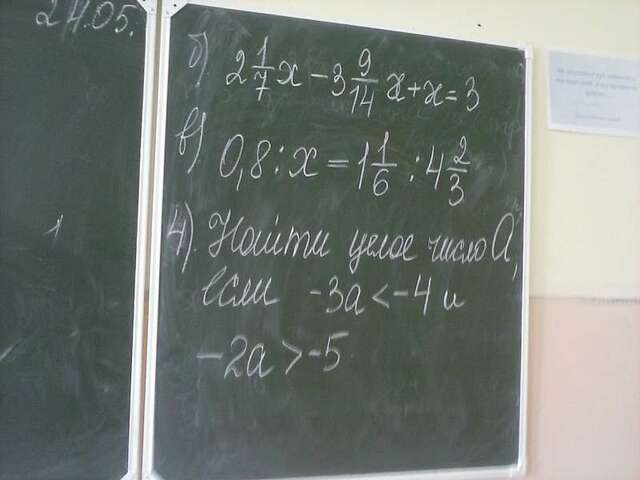 24.05.
б) 2 1/7 x - 3 9/14 x + x = 3
в) 0,8 : x = 1 1/6 : 4 2/3
4). Найти целое число a,
если -3a < -4 и
-2a > -5